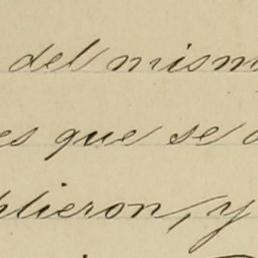 del mism
es que se
plieron, y